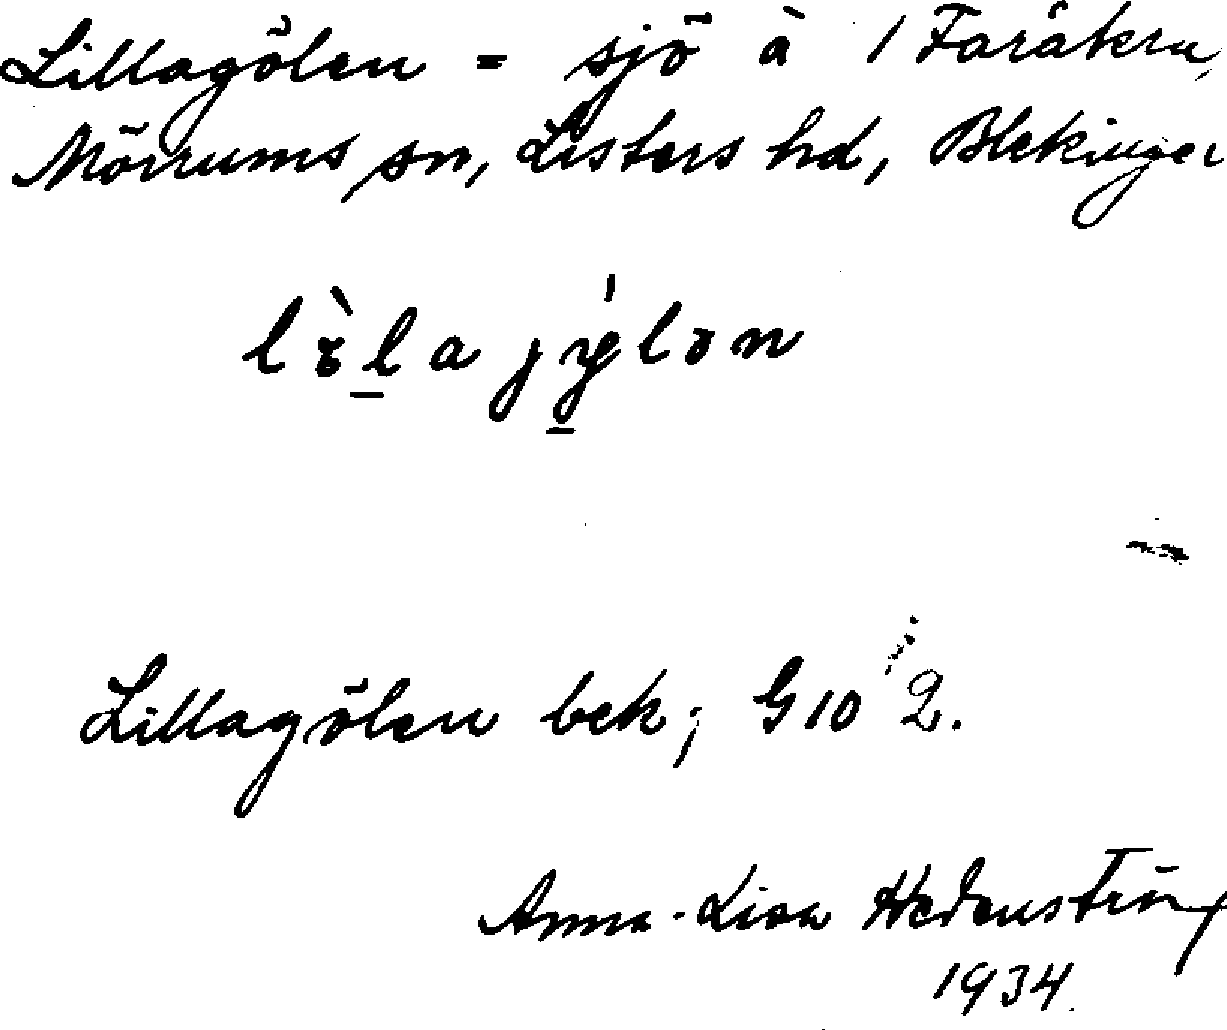 Lillagölen = sjö à 1 Faråkra,
Mörrums sn, Listers hd, Blekinge
Lillagölen bek; G10 2.
Anna-Lisa Hedenström
1934.